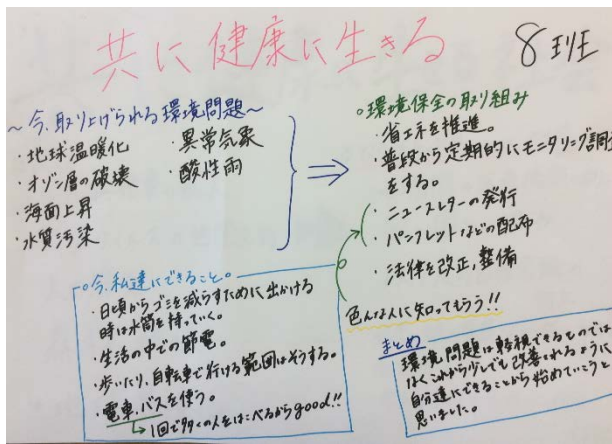 共に健康に生きる
8班
～今、取り上げられる環境問題～
・地球温暖化
・オゾン層の破壊
・海面上昇
・水質汚染
・異常気象
・酸性雨
○環境保全の取り組み
・省エネを推進。
・普段から定期的にモニタリング調査
をする。
・ニュースレターの発行
・パンフレットなどの配布
・法律を改正,整備
色んな人に知ってもらう!!
○今、私達にできること○
・日頃からゴミを減らすために出かける
時は水筒を持っていく。
・生活の中での節電。
・歩いたり、自転車で行ける範囲はそうする。
・電車、バスを使う。
1回で多くの人をはこべるからgood!!
まとめ
環境問題は軽視できるものでは
なくこれから少しでも改善されるように
自分達にできることから始めていこうと
思いました。